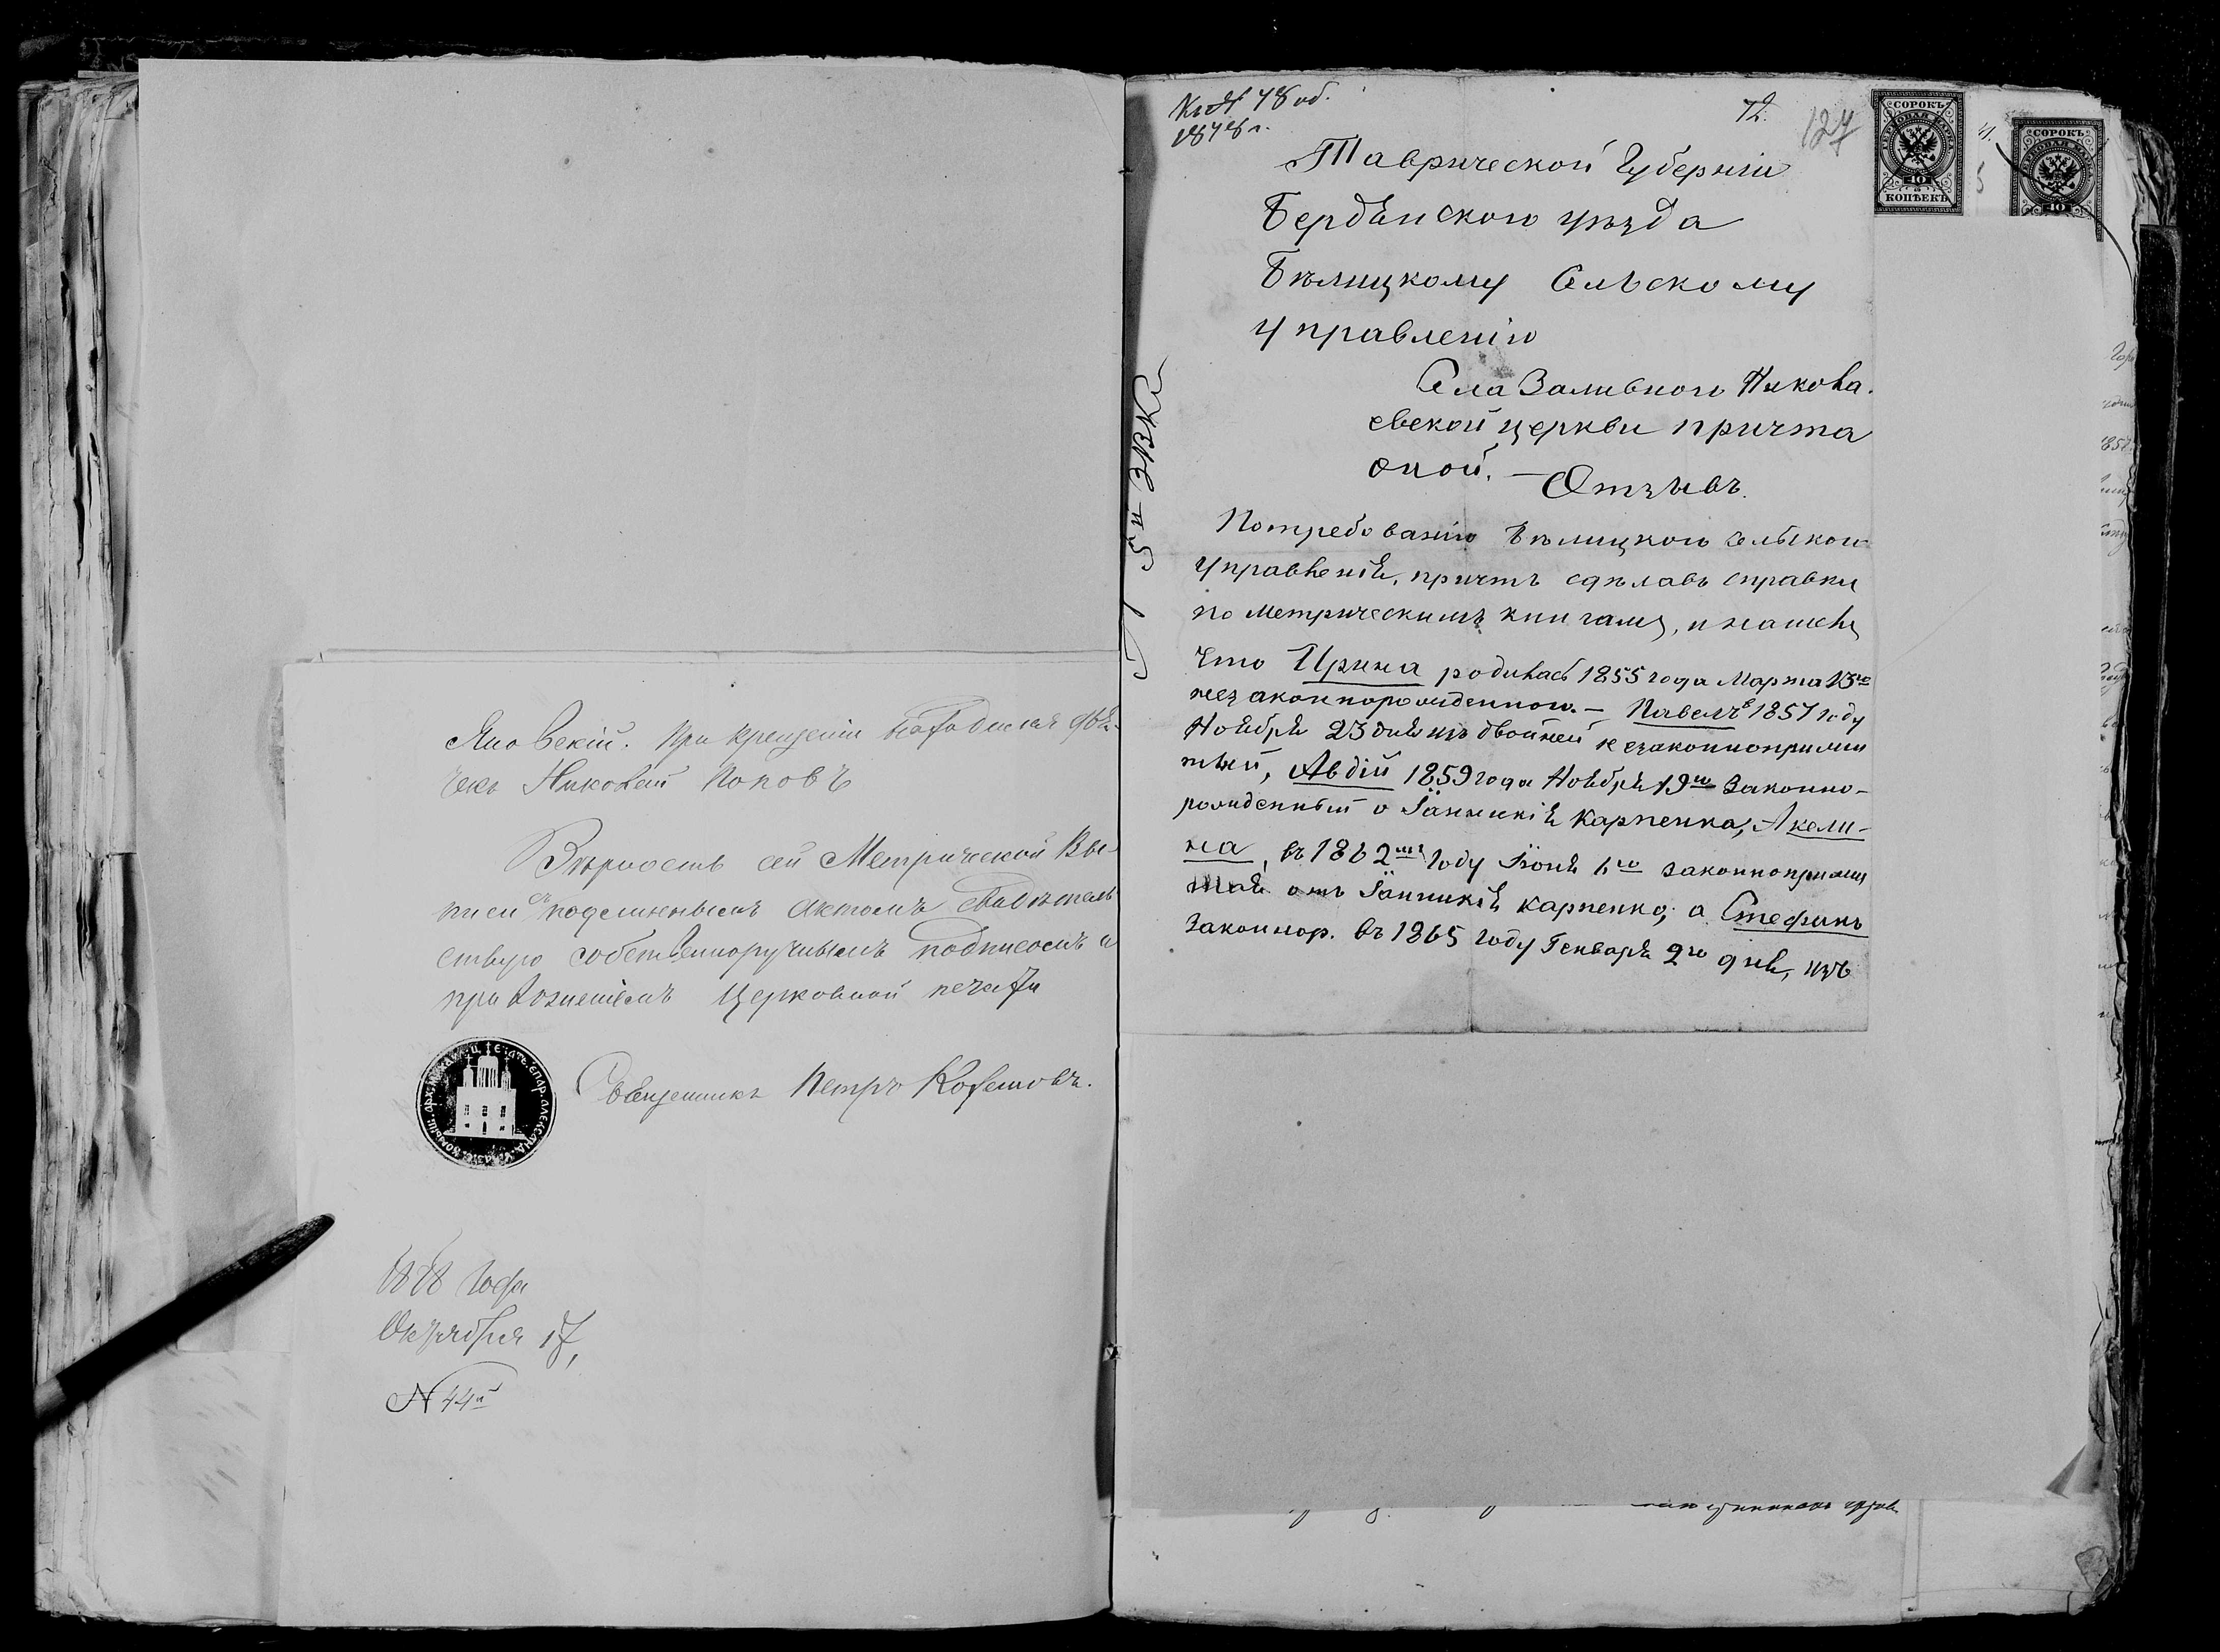 Яновскій. При крещеніи находился дья-
чекъ Николай Поповъ
Вѣрность сей Метрической Вы-
писи съ подлиннымъ Актомъ свидѣтель
ствую собственноручнымъ подписомъ и
приложеніемъ Церковной печати
Священникъ Петръ
1878 Года
Октября 17,
N 44й
Къ N 48 об.
1878 г.
72.
127
СОРОКЪ
ГЕРБОВАЯ МАРКА
40
КОПѢЕКЪ
СОРОКЪ
ГЕРБОВАЯ МАРКА
40
Таврической Губерніи
Бердянского уѣзда
Бѣлицкому Сельскому
управленію
Села Заливного Никола.
евской церкви причта
оной. — Отзывъ.
Потребованію Бѣлицкого сельского
управленія, причтъ сдѣлавъ справки
по Метрическимъ книгамъ, и нашелъ
Что Ирина родилась 1855 года Марта 13го
незаконнорожденною. — Павелъ 1857 году
Ноября 23 дня изъ двойней незаконноприжи
тый, Авдій 1859 года Ноября 19го Законно-
рожденный о Іанникія Карпенка, Акели-
на, въ 1862мъ году Іюня 6го законноприжи
тая отъ Іанникія Карпенко, а Стефанъ
Законнор. въ 1865 году Генваря 2го дня, изъ